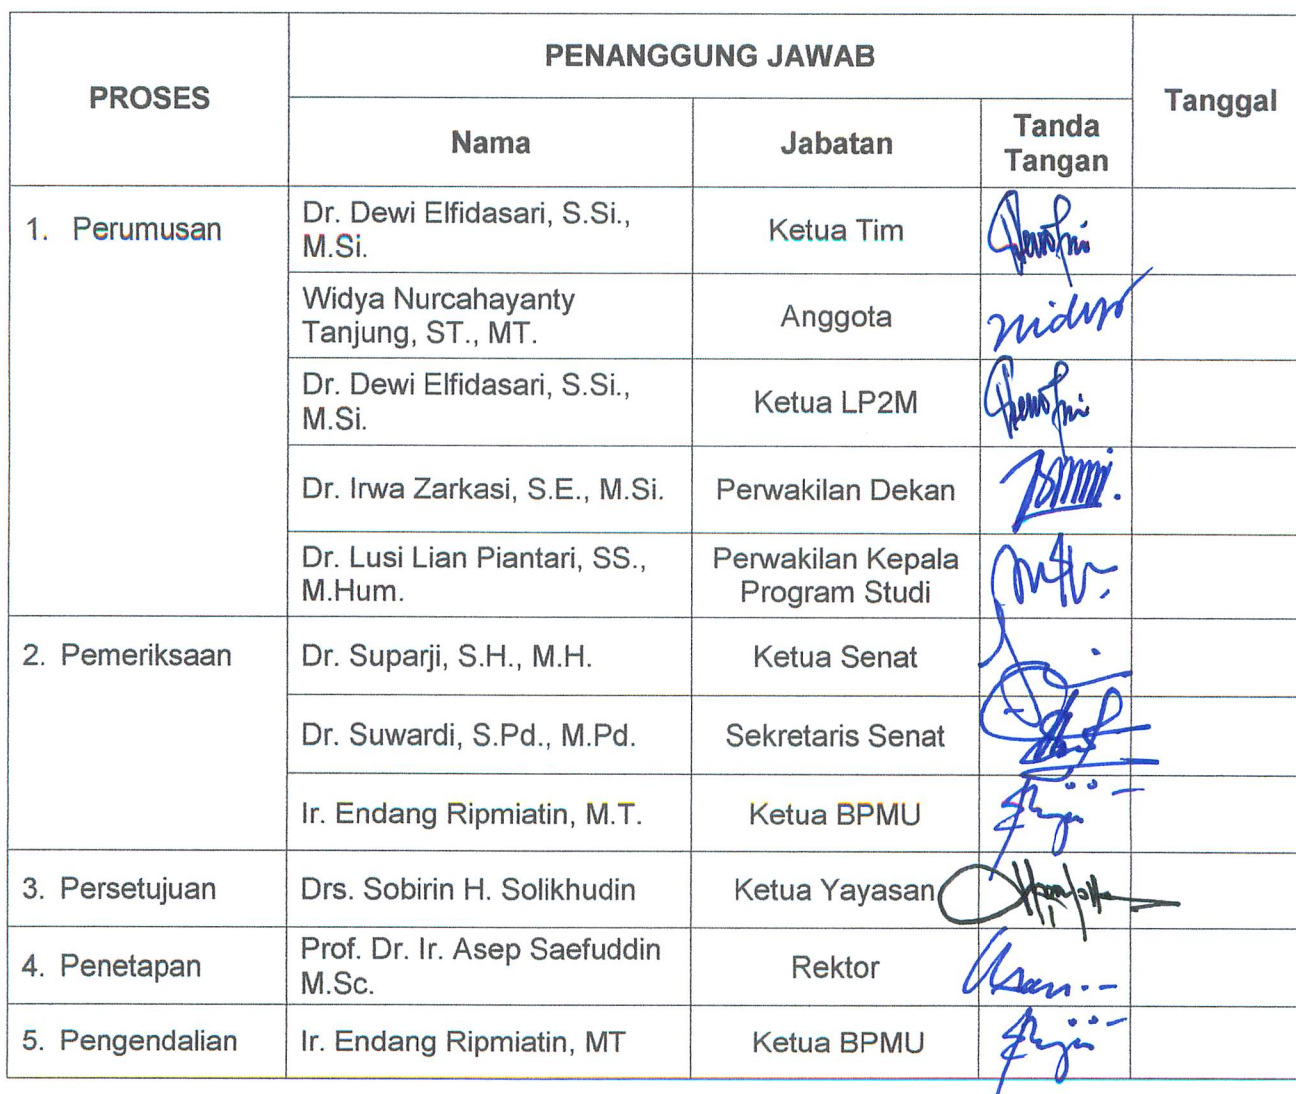 PROSES
PENANGGUNG JAWAB
Tanggal
Nama
Jabatan
Tanda
Tangan
1. Perumusan
Dr. Dewi Elfidasari, S.Si.,
M.Si.
Ketua Tim
Widya Nurcahayanty
Tanjung, ST., MT.
Anggota
Dr. Dewi Elfidasari, S.Si.,
M.Si.
Ketua LP2M
Dr. Irwa Zarkasi, S.E., M.Si.
Perwakilan Dekan
Dr. Lusi Lian Piantari, SS.,
M.Hum.
Perwakilan Kepala
Program Studi
2. Pemeriksaan
Dr. Suparji, S.H., M.H.
Ketua Senat
Dr. Suwardi, S.Pd., M.Pd.
Sekretaris Senat
Ir. Endang Ripmiatin, M.T.
Ketua BPMU
3. Persetujuan
Drs. Sobirin H. Solikhudin
Ketua Yayasan
4. Penetapan
Prof. Dr. Ir. Asep Saefuddin
M.Sc.
Rektor
5. Pengendalian
Ir. Endang Ripmiatin, MT
Ketua BPMU